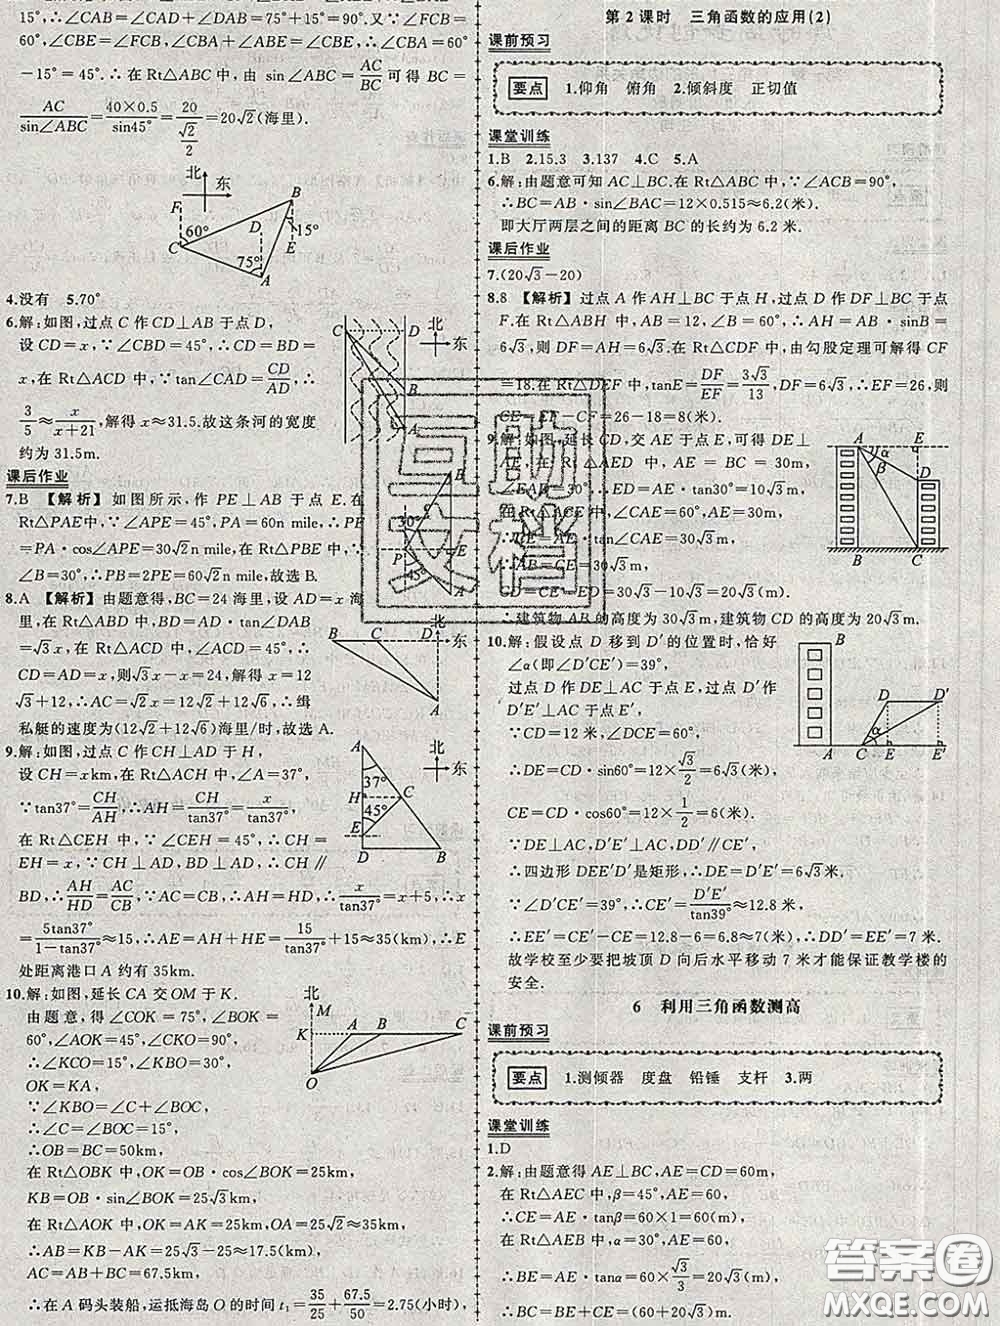 15°,∴∠CAB=∠CAD+∠DAB=75°+15°=90°(2)∵∠FCB=
60°,∠CBE=∠FCB=60°,∴∠CBA+∠ABE=∠CBE,∴∠CBA=60°
-15°=45°.∴在Rt△ABC中,由 sin∠ABC=AC/BC可得 BC=
AC/sin∠ABC=40×0.5/sin45°=20/(√2/2)=20√2(海里).
北
东
F
B
D
60°
15°
C
E
75°
A
4.没有 5.70°
6.解:如图,过点C作CD⊥AB于点D,
设CD=x,∵∠CBD=45°,∴BD=CD=
x,在Rt△ACD中,∵tan∠CAD=CD/AD,∴
3/5≈x/(x+21),解得x≈31.5.故这条河的宽度
约为31.5m.
C
D
北
东
B
A
课后作业
7.B 【解析】如图所示,作PE⊥AB于点E.在
Rt△PAE中,∵∠APE=45°,PA=60n mile,∴PE
=PA·cos∠APE=30√2n mile,在Rt△PBE中,∵
∠B=30°,∴PB=2PE=60√2n mile,故选B.
B
30°
P
E
45°
A
8.A 【解析】由题意得,BC=24海里,设AD=x海
里,在Rt△ABD中,BD=AD·tan∠DAB
=√3x,在Rt△ACD中,∵∠DAC=45°,
∴CD=AD=x,则√3x-x=24,解得x=12
√3+12,∴AC=√2x=12√2+12√6,∴缉
私艇的速度为(12√2+12√6)海里/时,故选A.
北
B
C
D
东
A
9.解:如图,过点C作CH⊥AD于H,
设CH=xkm,在Rt△ACH中,∠A=37°,
∵tan37°=CH/AH,∴AH=CH/tan37°=x/tan37°,
在Rt△CEH中,∵∠CEH=45°,∴CH=
EH=x,∵CH⊥AD,BD⊥AD,∴CH∥
BD,∴AH/HD=AC/CB,∵AC=CB,∴AH=HD,∴x/tan37°=x+5,∴x
=5tan37°/(1-tan37°)≈15,∴AE=AH+HE=15/tan37°+15≈35(km),∴E
处距离港口A约有35km.
A
北
37°
东
H
C
45°
E
D
B
10.解:如图,延长CA交OM于K.
由题意,得∠COK=75°,∠BOK=
60°,∠AOK=45°,∠CKO=90°,
∴∠KCO=15°,∠KBO=30°,
OK=KA.
∵∠KBO=∠C+∠BOC,
∴∠C=∠BOC=15°,
∴OB=BC=50km,
在Rt△OBK中,OK=OB·cos∠BOK=25km,
KB=OB·sin∠BOK=25√3km,
在Rt△AOK中,OK=AK=25km,OA=25√2km,
∴AB=KB-AK=25√3-25≈17.5(km),
AC=AB+BC=67.5km,
∴在A码头装船,运抵海岛O的时间t₁=35/25+67.5/50=2.75(小时),
北
M
K
A
B
C
O
第2课时 三角函数的应用(2)
课前预习
要点 1.仰角 俯角 2.倾斜度 正切值
课堂训练
1.B 2.15.3 3.137 4.C 5.A
6.解:由题意可知AC⊥BC.在Rt△ABC中,∵∠ACB=90°,
∴BC=AB·sin∠BAC=12×0.515≈6.2(米).
即大厅两层之间的距离BC的长约为6.2米.
课后作业
7.(20√3-20)
8.8 【解析】过点A作AH⊥BC于点H,过点D作DF⊥BC于点
F.在Rt△ABH中,AB=12,∠B=60°,∴AH=AB·sinB=
6√3,则DF=AH=6√3.在Rt△CDF中,由勾股定理可解得CF
=18.在Rt△DEF中,tanE=DF/EF=3√3/13,DF=6√3,∴EF=26,则
CE=EF-CF=26-18=8(米).
9.解:如图,延长CD,交AE于点E,可得DE⊥
AE,在Rt△AED中,AE=BC=30m,
∠EAD=30°,∴ED=AE·tan30°=10√3m,
在Rt△ACE中,∠CAE=60°,AE=30m,
∴CE=AE·tan∠CAE=30√3m,
∴AB=CE=30√3m,
CD=CE-ED=30√3-10√3=20√3(m).
∴建筑物AB的高度为30√3m,建筑物CD的高度为20√3m.
A
E
α
β
D
B
C
10.解:假设点D移到D′的位置时,恰好
∠α(即∠D′CE′)=39°,
过点D作DE⊥AC于点E,过点D′作
D′E′⊥AC于点E′,
∵CD=12米,∠DCE=60°,
∴DE=CD·sin60°=12×√3/2=6√3(米),
CE=CD·cos60°=12×1/2=6(米).
∵DE⊥AC,D′E′⊥AC,DD′∥CE′,
∴四边形DEE′D′是矩形,∴DE=D′E′=6√3米.
∵∠D′CE′=39°,∴CE′=D′E′/tan39°≈12.8米,
∴EE′=CE′-CE=12.8-6=6.8≈7(米).∴DD′=EE′=7米.
故学校至少要把坡顶D向后水平移动7米才能保证教学楼的
安全.
B
D
D′
A
C
E
E′
6 利用三角函数测高
课前预习
要点 1.测倾器 度盘 铅锤 支杆 3.两
课堂训练
1.D
2.解:由题意得AE⊥BC,AE=CD=60m,
在Rt△AEC中,β=45°,AE=60,
∴CE=AE·tanβ=60×1=60(m).
在Rt△AEB中,α=30°,AE=60,
∴BE=AE·tanα=60×√3/3=20√3(m),
∴BC=BE+CE=(60+20√3)m.
互助
文档
答案圈
MXQE.COM